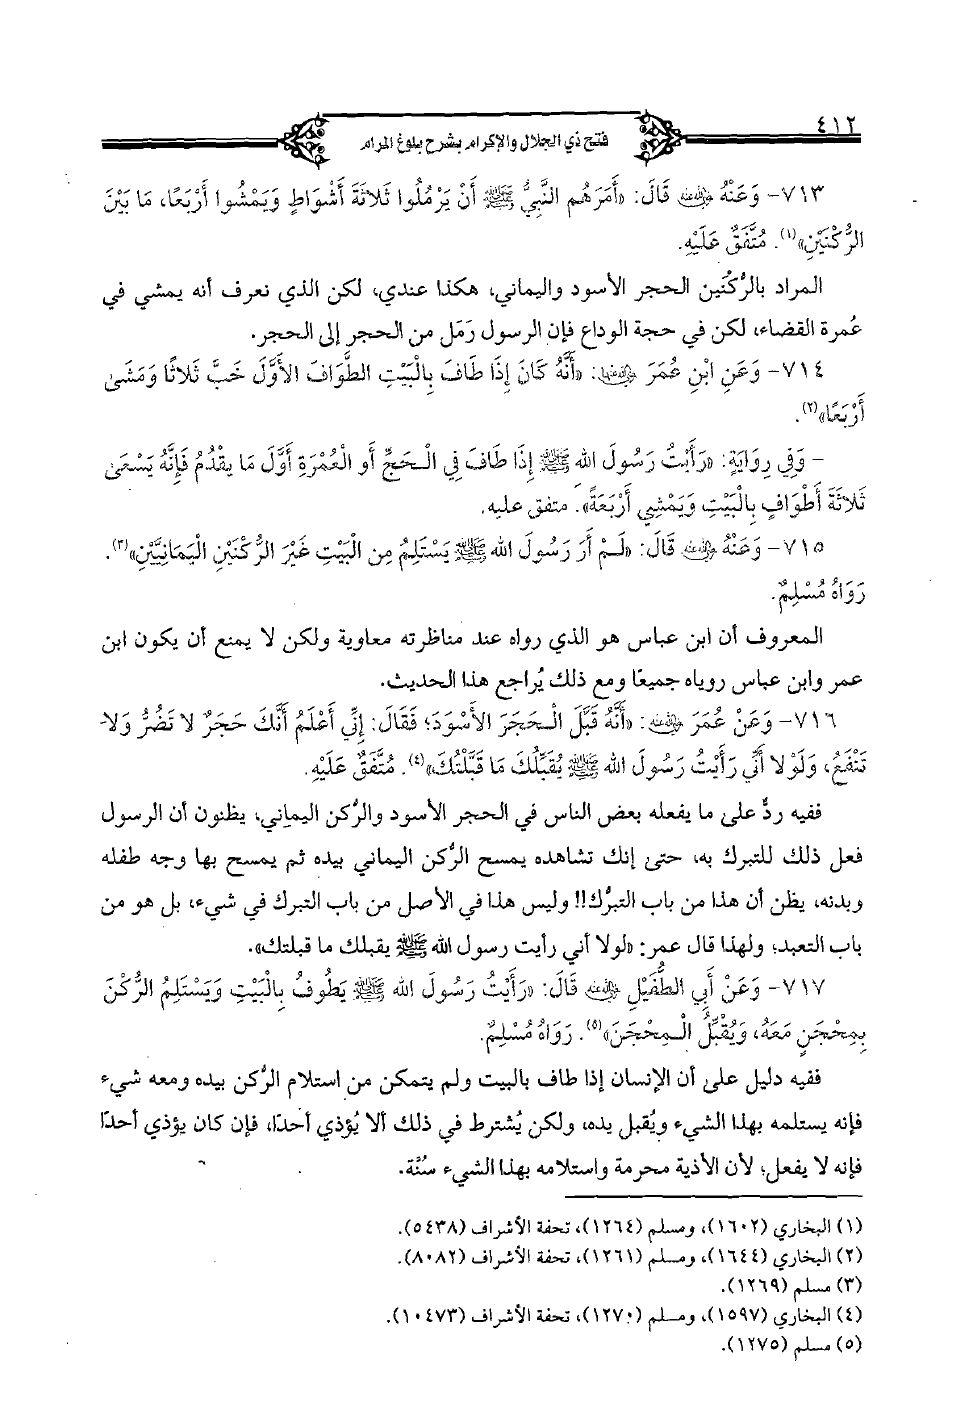 ٤١٢
فتح ذي الجلال والإكرام بشرح بلوغ المرام
٧١٣- وَعَنْهُ رضي الله عنه قَالَ: «أَمَرَهُم النَّبِيُّ ﷺ أَنْ يَرْمُلُوا ثَلَاثَةَ أَشْوَاطٍ وَيَمْشُوا أَرْبَعًا، مَا بَيْنَ
الرُّكْنَيْنِ»(١). مُتَّفَقٌ عَلَيْهِ.
المراد بالرُّكنين الحجر الأسود واليماني، هكذا عندي، لكن الذي نعرف أنه يمشي في
عُمرة القضاء، لكن في حجة الوداع فإن الرسول رَمَل من الحجر إلى الحجر.
٧١٤- وَعَنِ ابْنِ عُمَرَ رضي الله عنهما: «أَنَّهُ كَانَ إِذَا طَافَ بِالْبَيْتِ الطَّوَافَ الأَوَّلَ خَبَّ ثَلَاثًا وَمَشَى
أَرْبَعًا»(٢).
- وَفِي رِوَايَةٍ: «رَأَيْتُ رَسُولَ الله ﷺ إِذَا طَافَ فِي الْحَجِّ أَو الْعُمْرَةِ أَوَّلَ مَا يقْدُمُ فَإِنَّهُ يَسْعَى
ثَلَاثَةَ أَطْوَافٍ بِالْبَيْتِ وَيَمْشِي أَرْبَعَةً». متفق عليه.
٧١٥- وَعَنْهُ رضي الله عنه قَالَ: «لَمْ أَرَ رَسُولَ الله ﷺ يَسْتَلِمُ مِن الْبَيْتِ غَيْرَ الرُّكْنَيْنِ الْيَمَانِيَّيْنِ»(٣).
رَوَاهُ مُسْلِمٌ.
المعروف أن ابن عباس هو الذي رواه عند مناظرته معاوية ولكن لا يمنع أن يكون ابن
عمر وابن عباس روياه جميعًا ومع ذلك يُراجع هذا الحديث.
٧١٦- وَعَنْ عُمَرَ رضي الله عنه: «أَنَّهُ قَبَّلَ الْحَجَرَ الأَسْوَدَ؛ فَقَالَ: إِنِّي أَعْلَمُ أَنَّكَ حَجَرٌ لا تَضُرُّ وَلا
تَنْفَعُ، وَلَوْلا أَنِّي رَأَيْتُ رَسُولَ الله ﷺ يُقَبِّلُكَ مَا قَبَّلْتُكَ»(٤). مُتَّفَقٌ عَلَيْهِ.
ففيه ردٌّ على ما يفعله بعض الناس في الحجر الأسود والرُّكن اليماني، يظنون أن الرسول
فعل ذلك للتبرك به، حتى إنك تشاهده يمسح الرُّكن اليماني بيده ثم يمسح بها وجه طفله
وبدنه، يظن أن هذا من باب التبرُّك!! وليس هذا في الأصل من باب التبرك في شيء، بل هو من
باب التعبد؛ ولهذا قال عمر: «لولا أني رأيت رسول الله ﷺ يقبلك ما قبلتك».
٧١٧- وَعَنْ أَبِي الطُّفَيْلِ رضي الله عنه قَالَ: «رَأَيْتُ رَسُولَ الله ﷺ يَطُوفُ بِالْبَيْتِ وَيَسْتَلِمُ الرُّكْنَ
بِمِحْجَنٍ مَعَهُ، وَيُقَبِّلُ الْمِحْجَنَ»(٥). رَوَاهُ مُسْلِمٌ.
ففيه دليل على أن الإنسان إذا طاف بالبيت ولم يتمكن من استلام الرُّكن بيده ومعه شيء
فإنه يستلمه بهذا الشيء ويُقبل يده، ولكن يُشترط في ذلك ألا يُؤذي أحدًا، فإن كان يؤذي أحدًا
فإنه لا يفعل؛ لأن الأذية محرمة واستلامه بهذا الشيء سُنَّة.
(١) البخاري (١٦٠٢)، ومسلم (١٢٦٤)، تحفة الأشراف (٥٤٣٨).
(٢) البخاري (١٦٤٤)، ومسلم (١٢٦١)، تحفة الأشراف (٨٠٨٢).
(٣) مسلم (١٢٦٩).
(٤) البخاري (١٥٩٧)، ومسلم (١٢٧٠)، تحفة الأشراف (١٠٤٧٣).
(٥) مسلم (١٢٧٥).